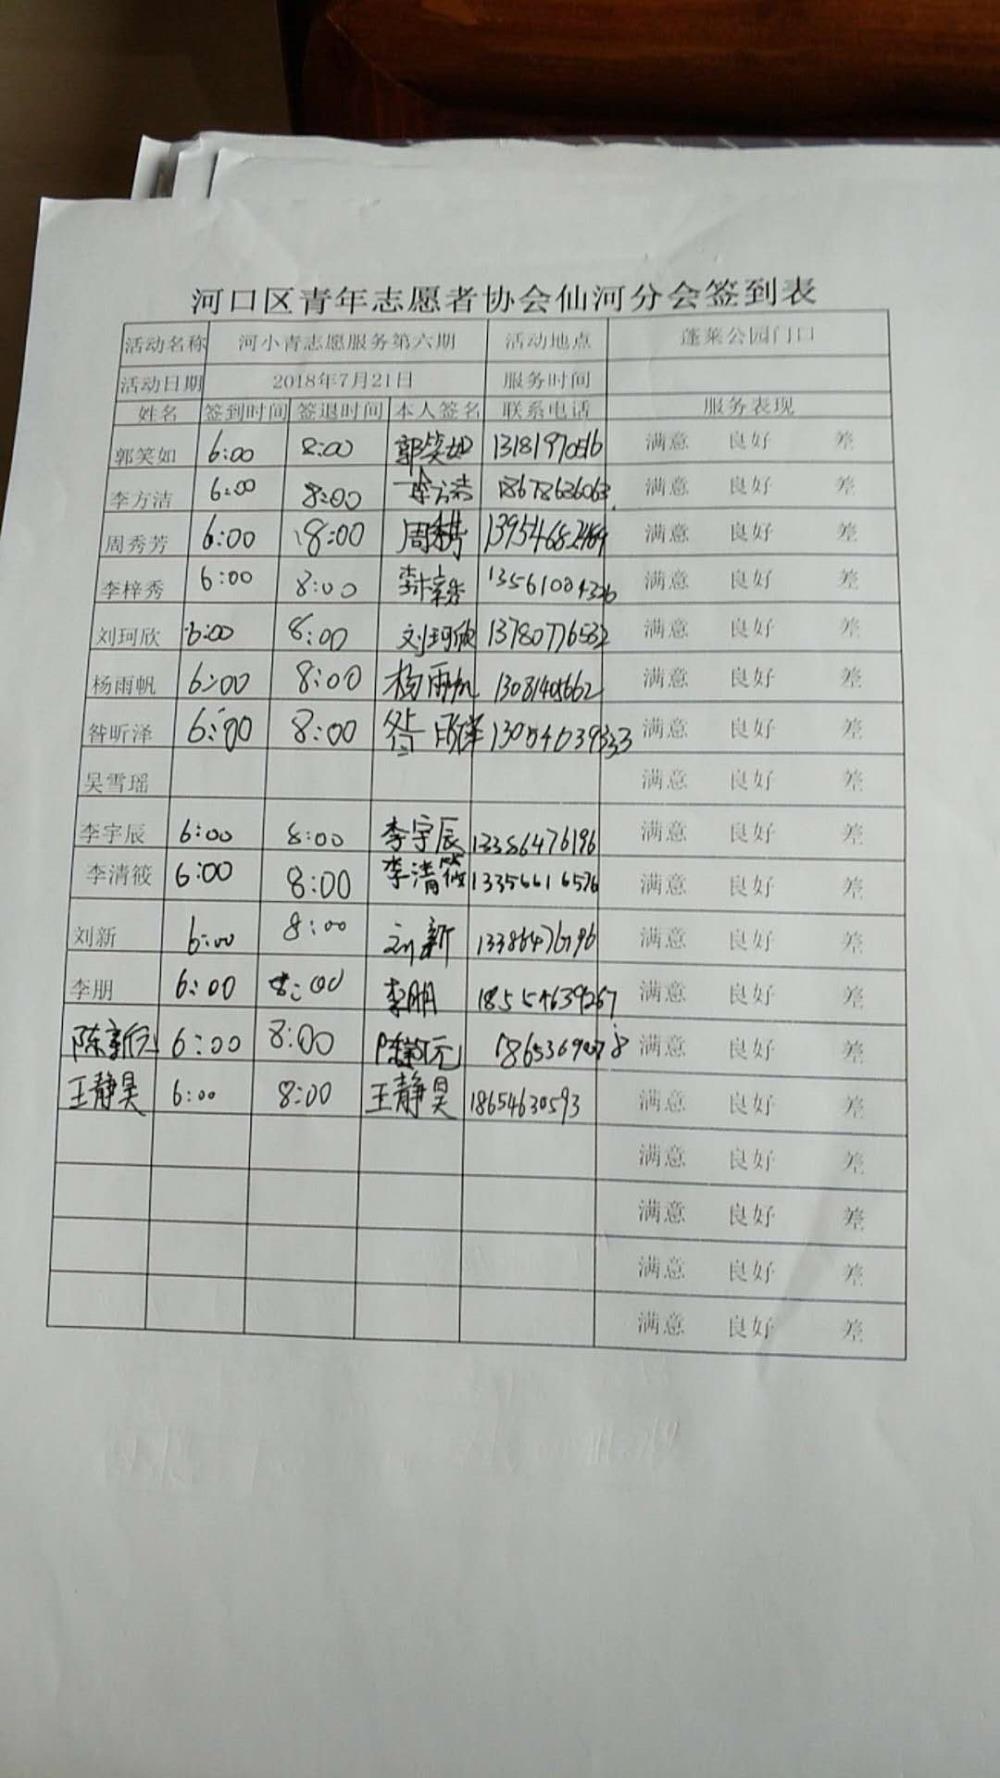 河口区青年志愿者协会仙河分会签到表
活动名称 河小青志愿服务第六期 活动地点 蓬莱公园门口
活动日期 2018年7月21日 服务时间
姓名 签到时间 签退时间 本人签名 联系电话 服务表现
郭笑如 6:00 8:00 郭笑如 满意 良好 差
李方洁 6:00 8:00 李方洁 18678636063 满意 良好 差
周秀芳 6:00 8:00 周秀芳 满意 良好 差
李梓秀 6:00 8:00 李梓秀 13561004326 满意 良好 差
刘珂欣 6:00 8:00 刘珂欣 13780776532 满意 良好 差
杨雨帆 6:00 8:00 杨雨帆 13081405662 满意 良好 差
昝昕泽 6:00 8:00 昝昕泽 满意 良好 差
吴雪瑶 满意 良好 差
李宇辰 6:00 8:00 李宇辰 13386476196 满意 良好 差
李清筱 6:00 8:00 李清筱 13356616576 满意 良好 差
刘新 6:00 8:00 刘新 13386476196 满意 良好 差
李朋 6:00 8:00 李朋 18554639267 满意 良好 差
陈新元 6:00 8:00 陈新元 满意 良好 差
王静昊 6:00 8:00 王静昊 18654630593 满意 良好 差
满意 良好 差
满意 良好 差
满意 良好 差
满意 良好 差